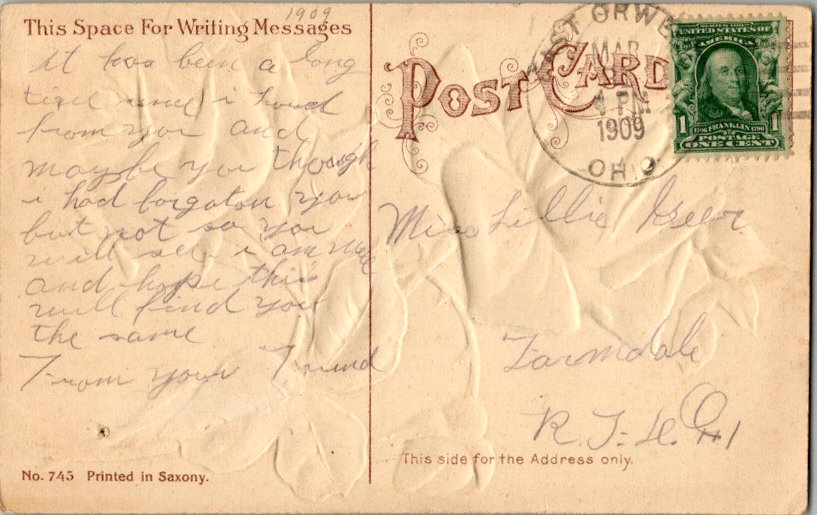 1909
This Space For Writing Messages
it has been a long
time since i heard
from you and
maybe you though
i had forgoton you
but not so you
will see i am well
and hope this
will find you
the same
From your Friend
No. 745 Printed in Saxony.
POST CARD
EAST ORWE
MAR
1 PM
1909
OHIO
SERIES 1902
UNITED STATES OF
AMERICA
1706 FRANKLIN 1790
1 POSTAGE 1
ONE CENT
Miss Lillie Greer
Farmdale
R.F.D. #1
This side for the Address only.